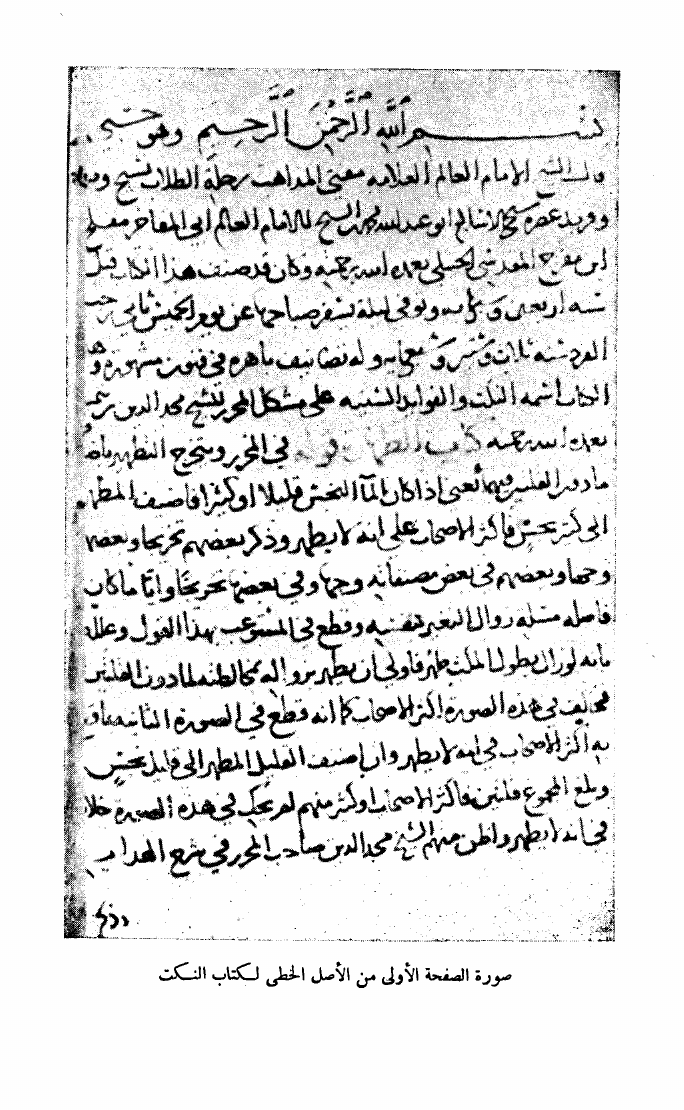 بسم الله الرحمن الرحيم وهو حسبي
قال الشيخ الامام العالم العلامه مفتي المداهب رحلة الطلاب شيخ
وفريد عصره شيخ الاسلام ابو عبد الله محمد بن الشيخ الامام العالم ابي المفاخر مفلح
ابن مفرج المقدسي الحنبلي تغمده الله برحمته وكان قد صنف هذا الكتاب قبل
سنه اربعين وتوفي ليلة يسفر صباحها عن يوم الخميس ثاني رجب
الفرد سنه ثلاث وستين وله تصانيف باهره في فنون مشهورة وهذا
الكتاب اسمه النكت والفوايد السنيه على مشكل المحرر للشيخ مجد الدين بن تيميه
تغمده الله برحمته كتاب الطهارة قوله في المحرر ويتخرج التطهير باضافة
مادون القلتين فيهما يعني اذا كان الماء النجس قليلا او كثيرا فاضيف المطهر
الى كثير نجس فاكثر الاصحاب على انه لا يطهر وذكر بعضهم تخريجا وبعضهم
وجها وبعضهم في بعض مصنفاته وجها وفي بعضها تخريجا وايا ما كان
فاصله مسئله زوال التغير بنفسه وقطع في المستوعب بهذا القول وعلله
بانه لو زال بطول المكث طهر فاولى ان يطهر بمخالطته لما دون القلتين
فخالف في هذه الصورة اكثر الاصحاب كما انه قطع في الصورة الثانيه
به اكثر الاصحاب في انه لا يطهر وان اضيف القليل المطهر الى قليل نجس
وبلغ المجموع قلتين فاكثر الاصحاب او كثير منهم لم يحك في هذه الصوره خلافا
في انه لا يطهر واظن منهم الشيخ مجد الدين صاحب المحرر في شرح الهدايه
صورة الصفحة الأولى من الأصل الخطى لكتاب النكت